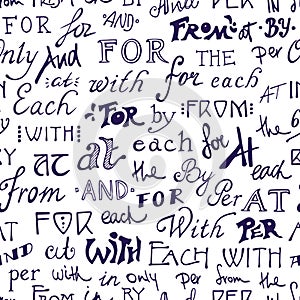 And PER IN
FOR for ·AND· FROM at· BY·
Only And FOR THE per
at with for each
Each FOR by FROM AT IN
WITH AT at each for At the
From ·AND· the By each
FOR Per AT
AT FOR each With PER AT
AND at WITH EACH WITH
per with in only per from the
FOR AND in BY FOR